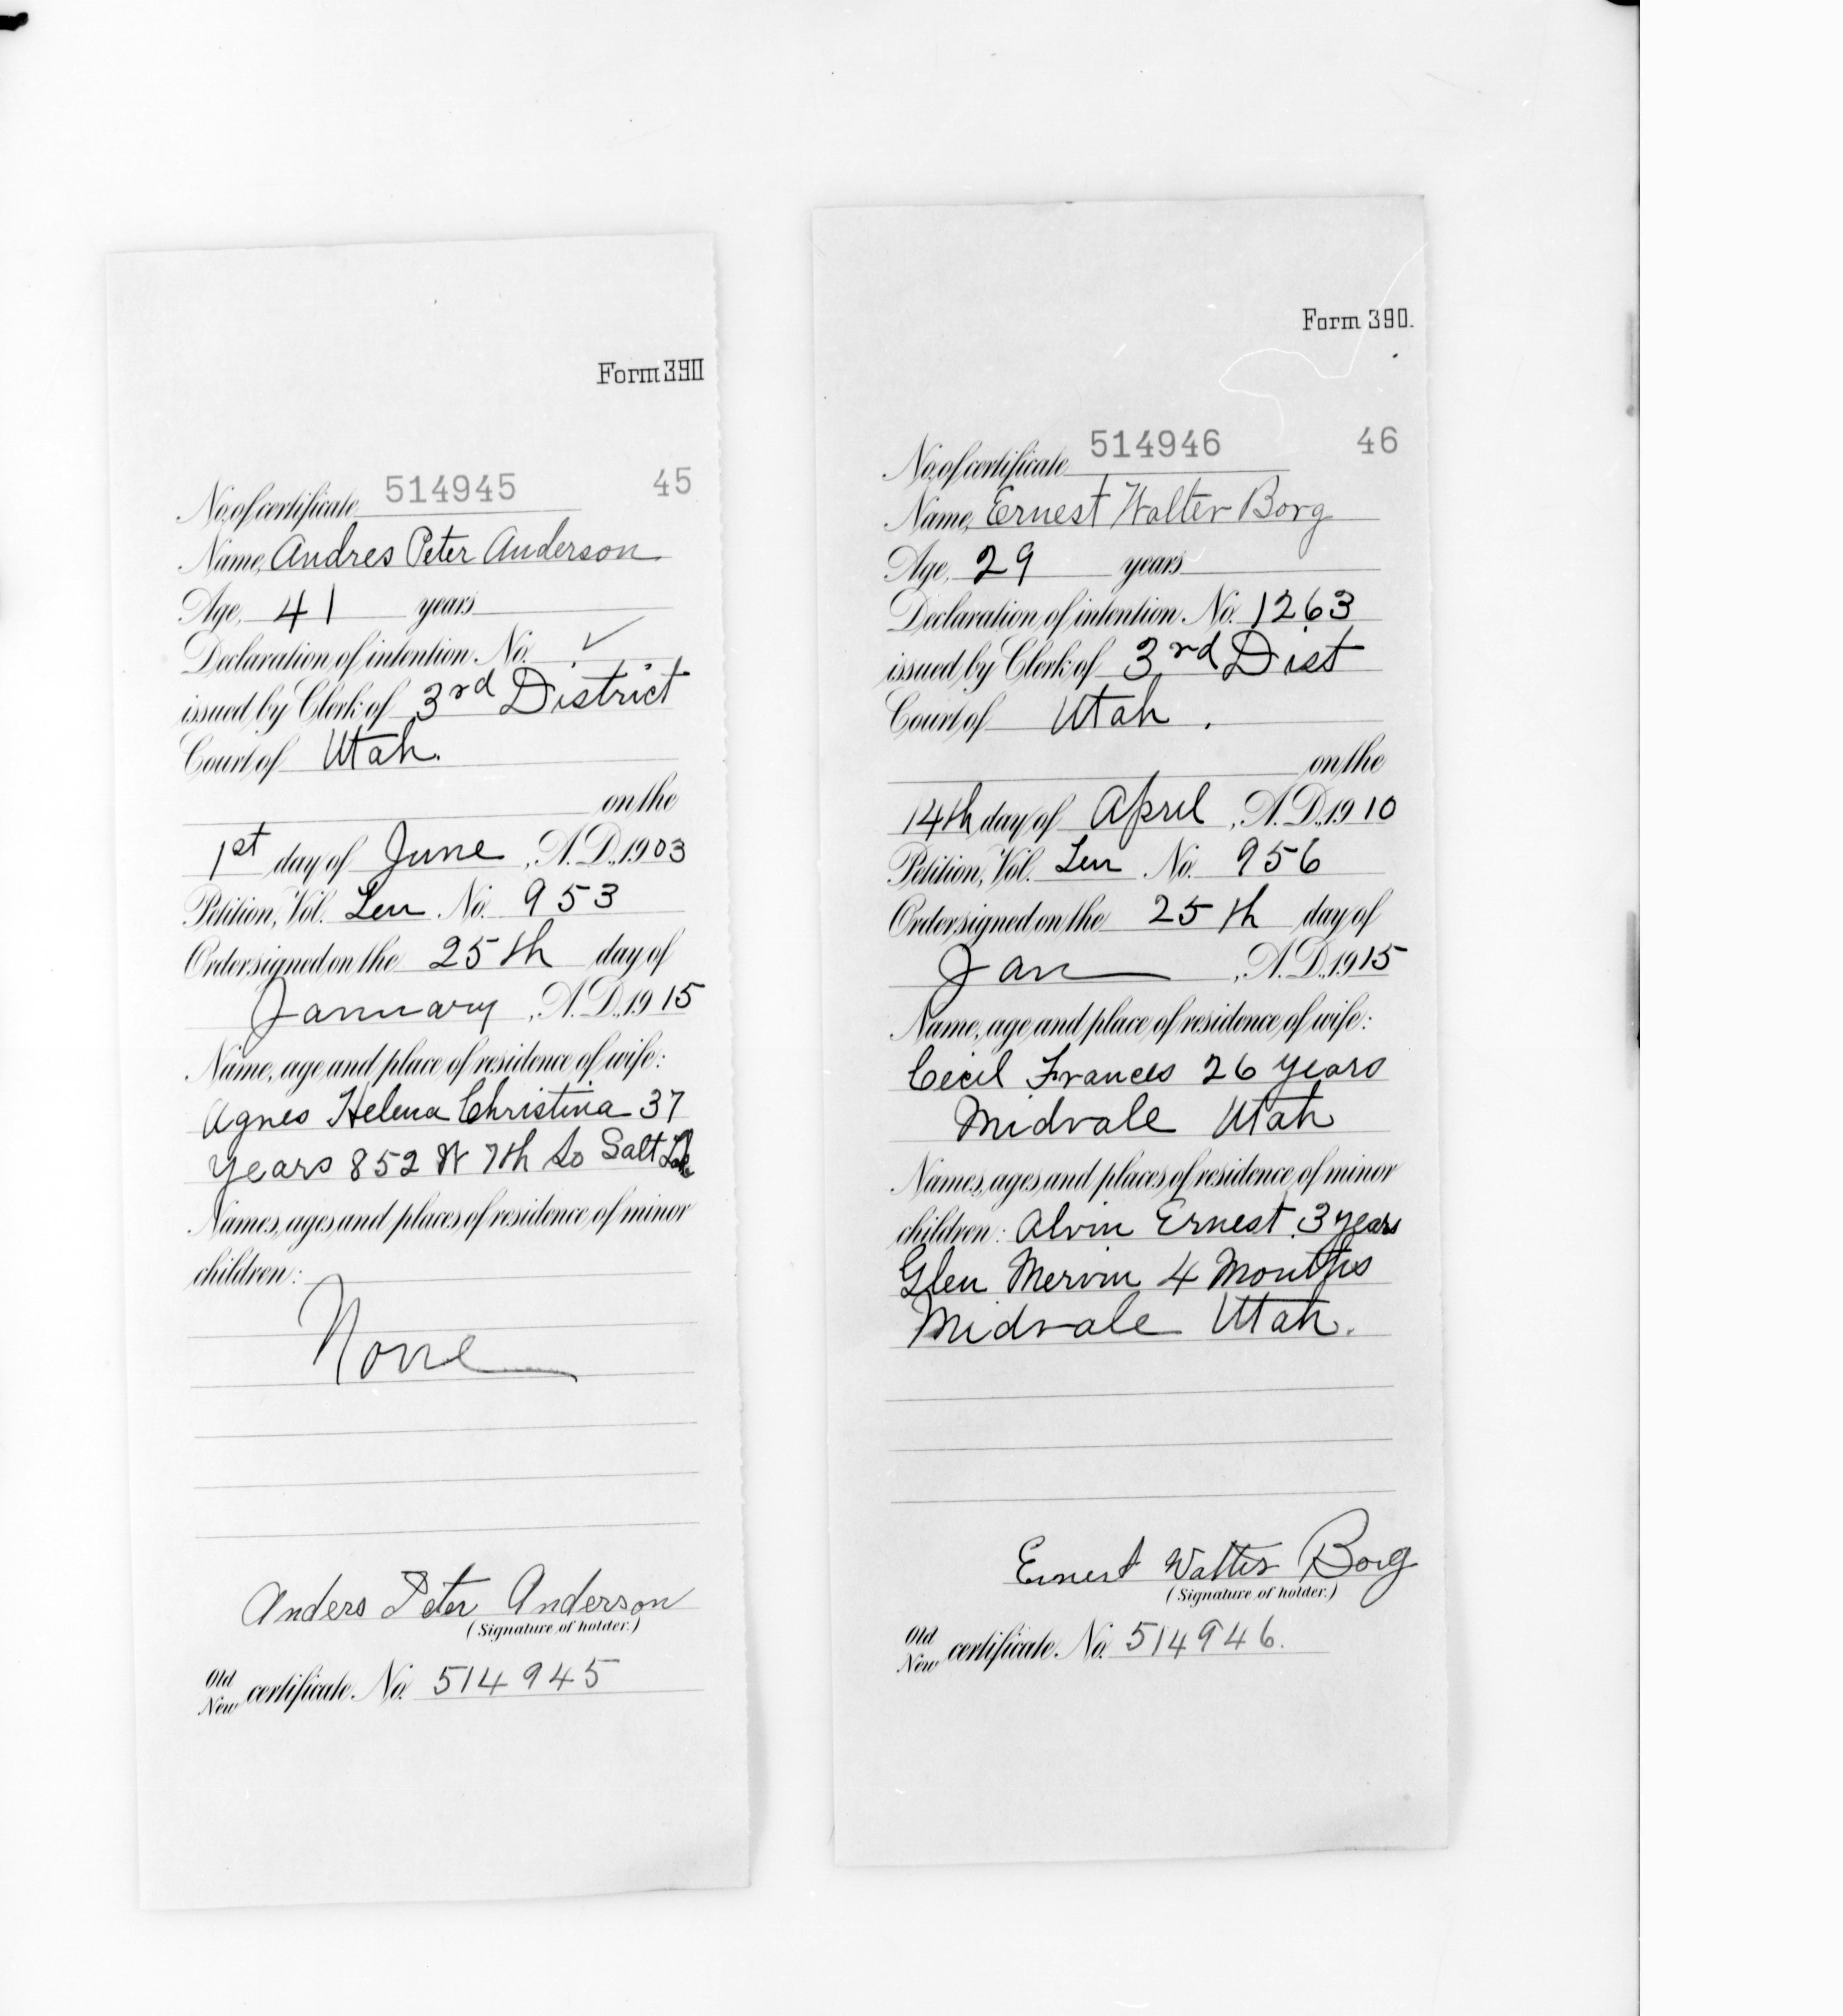 Form 390
No. of certificate 514945 45
Name, Andres Peter Anderson
Age, 41 years
Declaration of intention No. ✓
issued by Clerk of 3rd District
Court of Utah.
on the
1st day of June, A.D., 1903
Petition, Vol. Ten No. 953
Order signed on the 25th day of
January, A.D., 1915
Name, age and place of residence of wife:
Agnes Helena Christina 37
years 852 W 7th So Salt Lake
Names, ages and places of residence of minor
children:
None
Anders Peter Anderson
(Signature of holder.)
Old
New certificate. No. 514945
Form 390.
No. of certificate 514946 46
Name, Ernest Walter Borg
Age, 29 years
Declaration of intention. No. 1263
issued by Clerk of 3rd Dist
Court of Utah.
on the
14th day of April, A.D., 1910
Petition, Vol. Ten No. 956
Order signed on the 25th day of
Jan, A.D., 1915
Name, age and place of residence of wife:
Cecil Frances 26 years
Midvale Utah
Names, ages and places of residence of minor
children: Alvin Ernest. 3 years
Glen Mervin 4 Months
Midvale Utah.
Ernest Walter Borg
(Signature of holder.)
Old
New certificate. No. 514946.